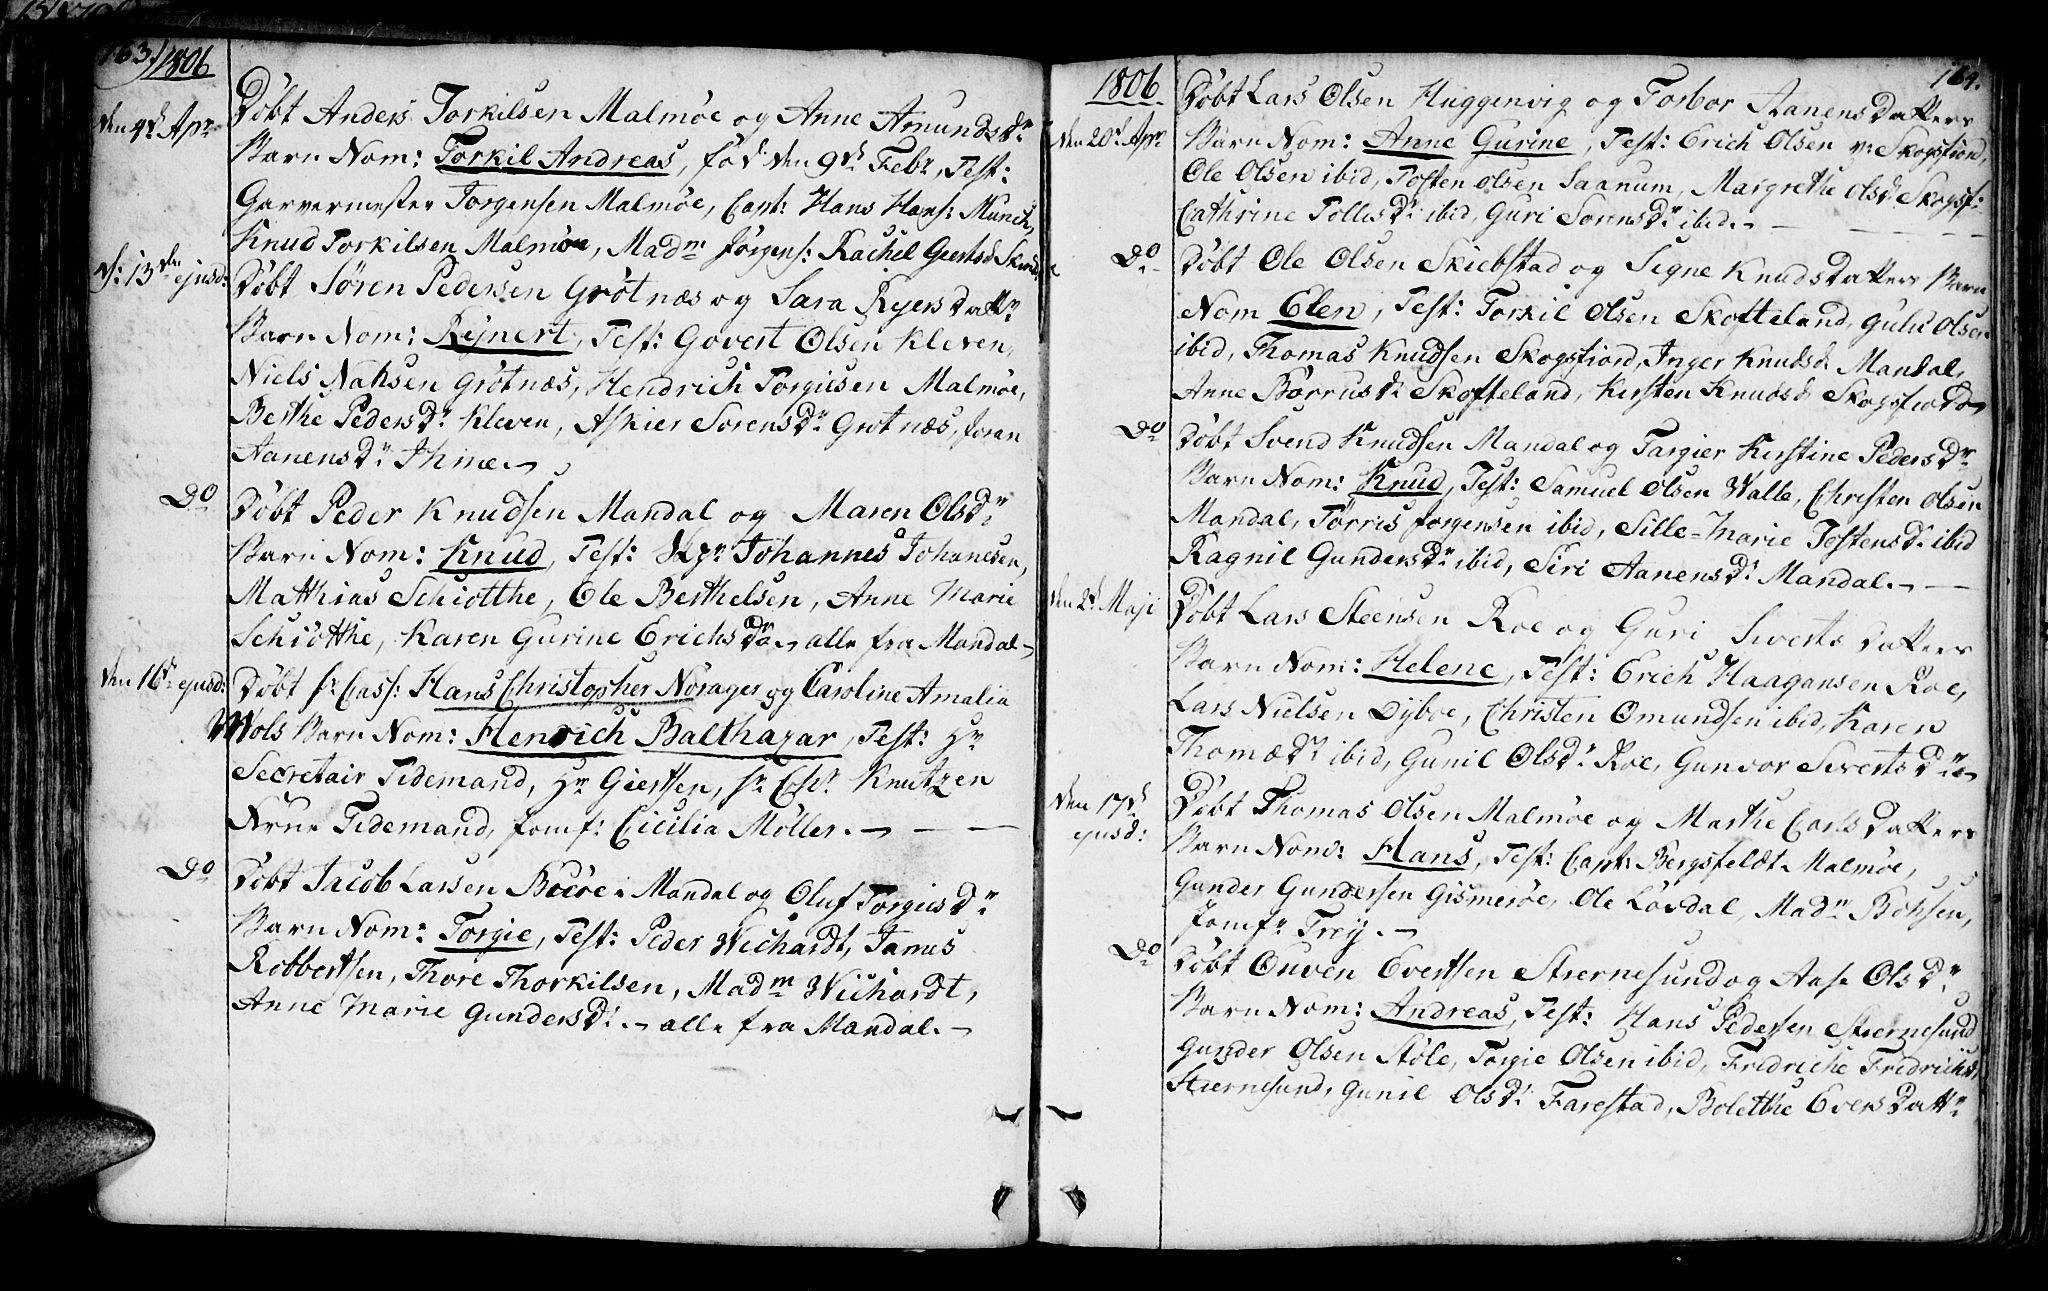 163. 1806
den 4d Apr
Døbt Anders Torkilsen Malmøe og Anne Amundsdr
Barn Nom: Torkil Andreas, fød den 9d Febr, Test:
Garvermester Torgensen Malmøe, Capt: Hans Hans: Munch,
Knud Torkilsen Malmøe, Madm Jørgens: Rachel Geertsd
d: 13den ejusd:
Døbt Søren Pedersen Grötnæs og Sara Ryers Dattr
Barn Nom: Rejnert, Test: Govert Olsen Kleven,
Niels Nahsen Grötnæs, Hendrich Torgiesen Malmøe,
Berthe Pedersdr Kleven, Askier Sorensdr Grotnæs, Joran
Aanensdr Ihme.
Do
Døbt Peder Knudsen Mandal og Maren Olsdr
Barn Nom: Knud, Test: Johannes Johanesen,
Matthias Schiøtthe, Ole Berthelsen, Anne Marie
Schiøtthe, Karen Gurine Erichsdr alle fra Mandal
den 16d ejusd:
Døbt Sr Cass: Hans Christopher Nörager og Caroline Amalia
Wols Barn Nom: Henrich Balthazar, Test: Hr
Secretair Tidemand, Hr Giertsen, Sr Chr Knutzen
Frue Tidemand, Jomf: Cicilia Möller.
Do
Døbt Jacob Larsen Boeøe i Mandal og Oluf Torgiesdr
Barn Nom: Torgie, Test: Peder Weihardt, Janus
Robbertsen, Thore Thorkilsen, Madm Weihardt,
Anne Marie Gundersdr alle fra Mandal.
1806. 164.
den 20d Apr
Døbt Lars Olsen Huggenvig og Torbor Aanensdatters
Barn Nom: Anne Gurine, Test: Erich Olsen v: Skogsfiord,
Ole Olsen ibid, Tosten Olsen Saanum, Margrethe Olsdr Skogsf:
Cathrine Tollisdr ibid, Guri Sorensdr ibid.
Do
Døbt Ole Olsen Skiebstad og Signe Knudsdatters Barn
Nom Elen, Test: Torkil Olsen Skofteland, Gulu Olsen
ibid, Thomas Knudsen Skogsfiord, Inger Knudsd Mandal,
Anne Börrusdr Skofteland, Kirsten Knudsd Skogsfiord
Do
Døbt Svend Knudsen Mandal og Targier Kirstine Pedersdr
Barn Nom: Knud, Test: Samuel Olsen Walle, Christen Olsen
Mandal, Törris Jorgensen ibid, Sille-Marie Jostensdr ibid
Ragnil Gundersdr ibid, Siri Aanensdr Mandal.
den 2d Maji
Døbt Lars Steensen Roe og Guri Siverts datters
Barn Nom: Helene, Test: Erich Haagansen Roe,
Lars Nielsen Dyboe, Christen Omundsen ibid, Karen
Thomædr ibid, Gunil Olsdr Roe, Gunvor Sivertsdr
den 17d
ejusd:
Døbt Thomas Olsen Malmøe og Marthe Carls datters
Barn Nom: Hans, Test: Capt: Bergsfeldt Malmøe,
Gunder Gundersen Gismerøe, Ole Lövdal, Madm Bohsen,
Jomfr Trey.
Do
Døbt Ouven Evertsen Stiernesund og Aase Olsdr
Barn Nom: Andreas, Test: Hans Pedersen Stiernesund
Gunder Olsen Støle, Torgie Olsen ibid, Fredriche Fredrichs,
Stiernesund, Gunil Olsdr Farestad, Bolethe Evers Dattr